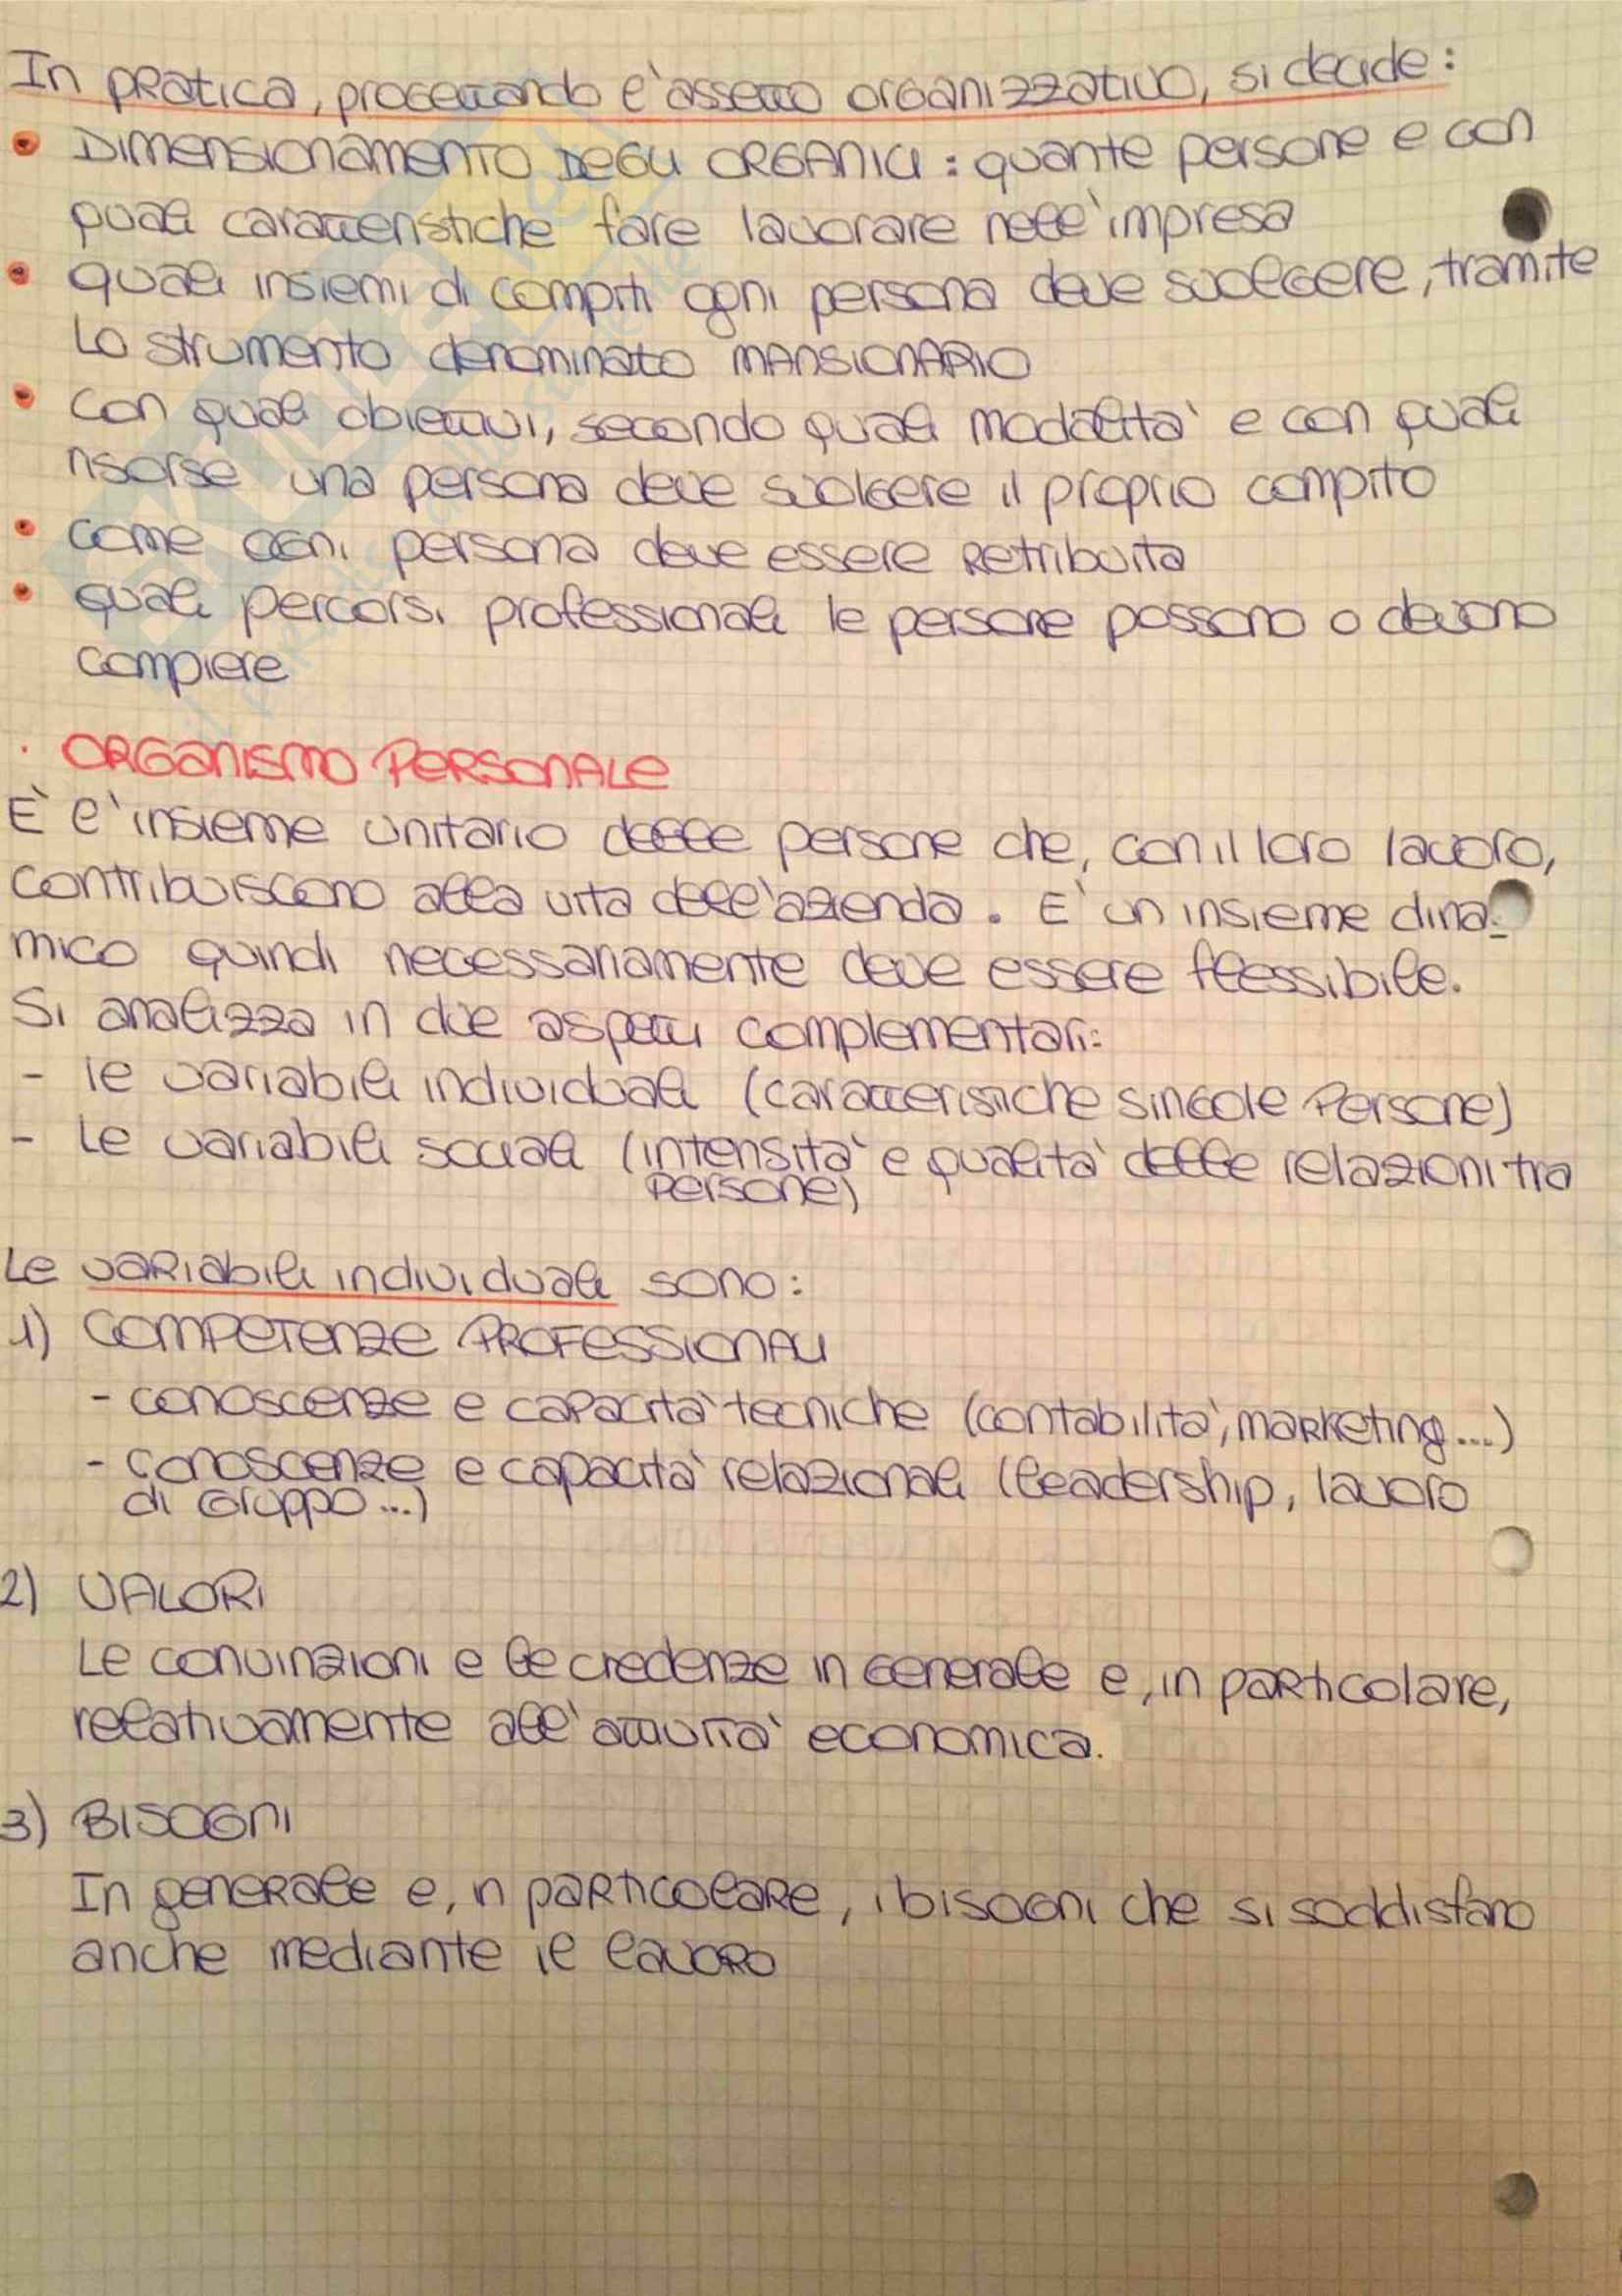 In pratica, progettando l'assetto organizzativo, si decide:
• DIMENSIONAMENTO DEGLI ORGANICI: quante persone e con
quali caratteristiche fare lavorare nell'impresa
• quali insiemi di compiti ogni persona deve svolgere, tramite
lo strumento denominato MANSIONARIO
• con quali obiettivi, secondo quali modalità e con quali
risorse una persona deve svolgere il proprio compito
• come ogni persona deve essere retribuita
• quali percorsi professionali le persone possono o devono
compiere
· ORGANISMO PERSONALE
È l'insieme unitario delle persone che, con il loro lavoro,
contribuiscono alla vita dell'azienda. E' un insieme dina-
mico quindi necessariamente deve essere flessibile.
Si analizza in due aspetti complementari:
- le variabili individuali (caratteristiche singole persone)
- Le variabili sociali (intensità e qualità delle relazioni tra
persone)
Le variabili individuali sono:
1) COMPETENZE PROFESSIONALI
- conoscenze e capacità tecniche (contabilità, marketing...)
- conoscenze e capacità relazionali (leadership, lavoro
di gruppo...)
2) VALORI
Le convinzioni e le credenze in generale e, in particolare,
relativamente all'attività economica.
3) BISOGNI
In generale e, in particolare, i bisogni che si soddisfano
anche mediante il lavoro